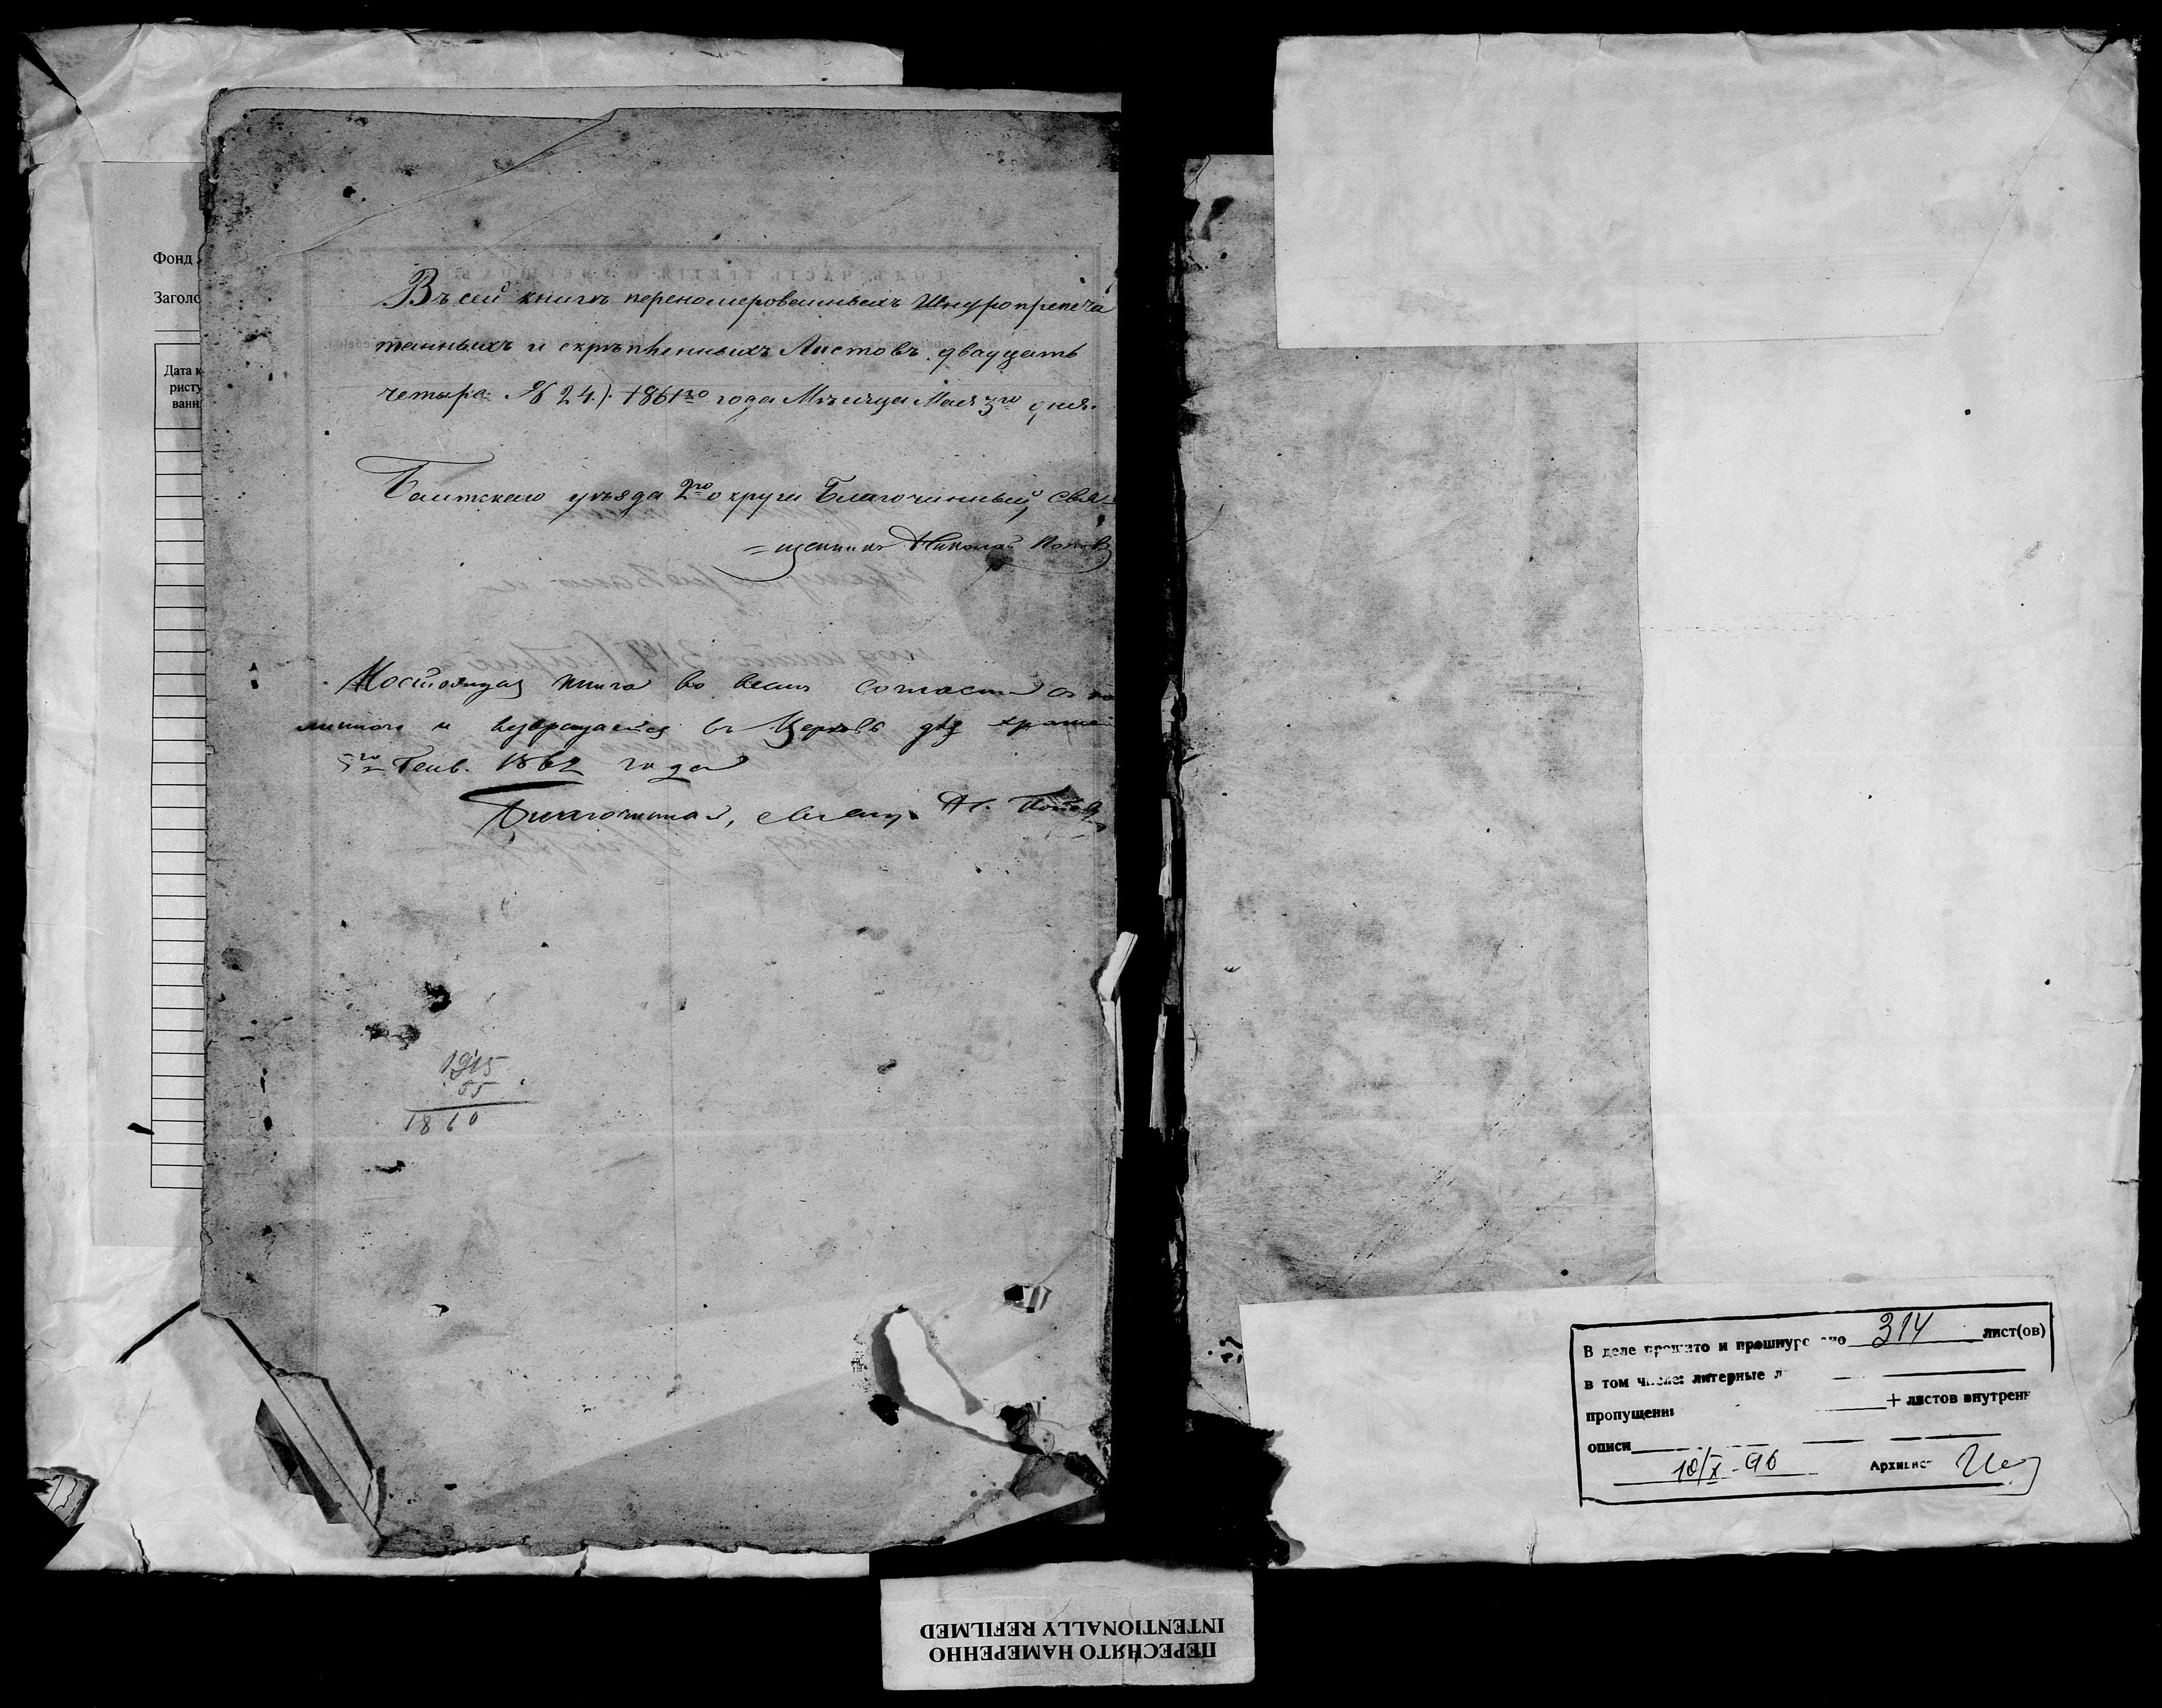 Фонд
Заголо
Дата к
ристу
ванн
Въ сей книгѣ переномерованныхъ Шнуропрепеча
танныхъ и скрѣпленныхъ Листовъ двадцать
четыре № 24.). 1861го года Мѣсяца Мая 3го дня.
Балтскаго уѣзда 2го округа Благочинный, Свя-
=щенникъ Николай Попов
Настоящая книга во всемъ согласна съ по
длинною и возвращается въ Церковь для хране
5го Генв. 1862 года
Благочинный, свящ. Н. Попов
1915
55
1860
В деле прошито и прошнуро но 314 лист(ов)
в том числе: литерные л
пропущенны + листов внутрен
описи
10/X-96 Архивис
ПЕРЕСНЯТО НАМЕРЕННО
INTENTIONALLY REFILMED